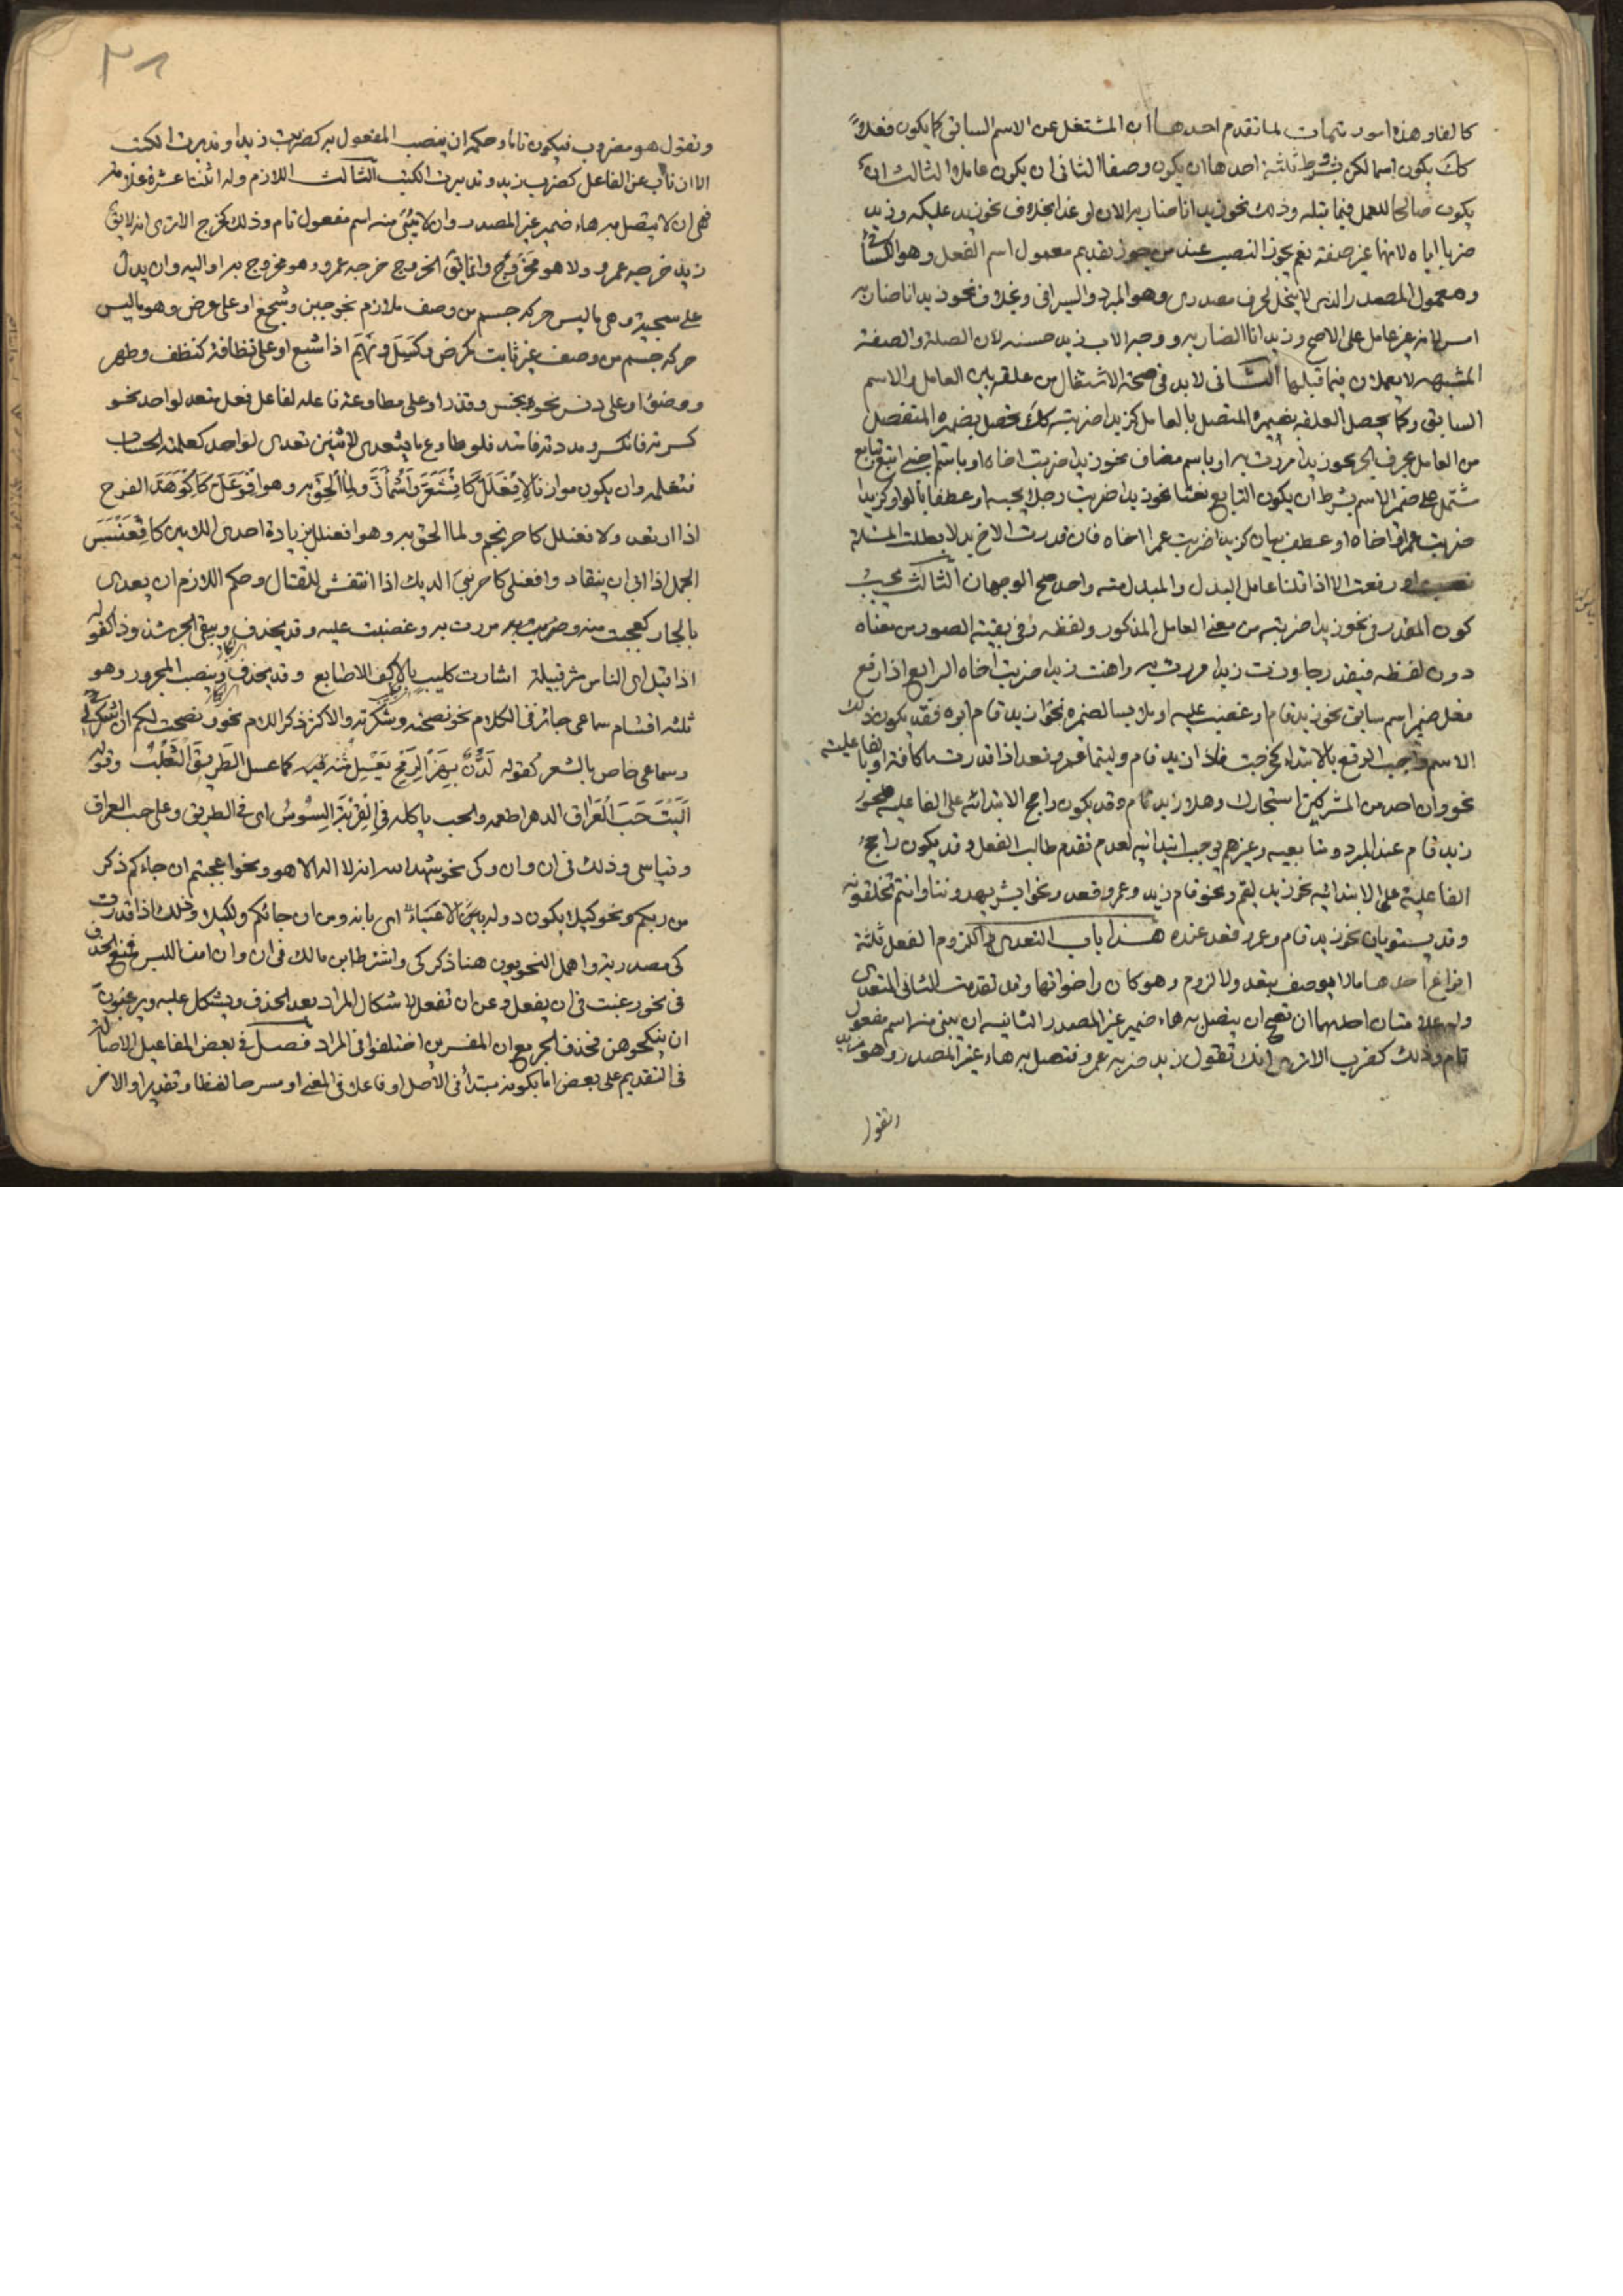 كالفا وهذه امور متممات لما تقدم احدها ان المشتغل عن الاسم السابق كما يكون فعلا
كك يكون اسما لكن بشروط ثلثة احدها ان يكون وصفا الثانى ان يكون عاملا الثالث ان
يكون صالحا للعمل فيما قبله وذلك نحو زيد انا ضاربه الان او غدا بخلاف نحو زيد عليكه وزيد
ضربا اياه لانها غير صفة نعم يجوز النصب عند من جوز تقديم معمول اسم الفعل وهو الكسائى
ومعمول المصدر الذى لا ينحل لحرف مصدرى وهو المبرد والسيرافى وبخلاف نحو زيد انا ضاربه
امس لانه غير عامل على الاصح وزيد انا الضاربه ووجه الاب زيد حسنه لان الصلة والصفة
المشبهه لا يعملان فيما قبلهما الثانى لا بد فى صحة الاشتغال من علقة بين العامل والاسم
السابق وكما يحصل العلقه بضميره المتصل بالعامل كزيدا ضربته كك تحصل بضميره المنفصل
من العامل بحرف الجر نحو زيدا مررت به او باسم مضاف نحو زيدا ضربت اخاه او باسم اجنبى اتبع بتابع
مشتمل على ضمير الاسم بشرط ان يكون التابع نعتا نحو زيدا ضربت رجلا يحبه او عطفا بالواو كزيدا
ضربت عمرا واخاه او عطف بيان كزيدا ضربت عمرا اخاه فان قدرت الاخ بدلا بطلت المسئلة
او رفعت الا اذا قلنا عامل البدل والمبدل منه واحد صح الوجهان الثالث يجب
كون المقدر فى نحو زيدا ضربته من معنى العامل المذكور ولفظه وفى بقية الصور من معناه
دون لفظه فيقدر جاوزت زيدا مررت به واهنت زيدا ضربت اخاه الرابع اذا رفع
فعل ضمير اسم سابق نحو زيد قام او غضب عليه او ملابسا لضميره نحو زيد قام ابوه فقد يكون ذلك
الاسم واجب الرفع بالابتداء كخرجت فاذا زيد قام وليتما عمرو قعد اذا قدرت ما كافة او بالفاعلية
نحو وان احد من المشركين استجارك وهلا زيد قام وقد يكون راجح الابتدائيه على الفاعليه نحو
زيد قام عند المبرد ومتابعيه وغيرهم يوجب ابتدائيته لعدم تقدم طالب الفعل وقد يكون راجح
الفاعلية على الابتدائيه نحو زيد ليقم ونحو قام زيد وعمرو قعد ونحو ابشر يهدوننا وانتم تخلقونه
وقد يستويان نحو زيد قام وعمرو قعد عنده هذا باب التعدى واللزوم الفعل ثلثة
انواع احدها ما لا يوصف بتعد ولا لزوم وهو كان واخواتها وقد تقدمت الثانى المتعدى
وله علامتان احدهما ان يصح ان يتصل به هاء ضمير غير المصدر الثانيه ان يبنى منه اسم مفعول
تام وذلك كضرب الا ترى انك تقول زيد ضربه عمرو فتصل به هاء غير المصدر وهو زيد
وتقول
٣١
وتقول هو مضروب فيكون تاما وحكمه ان ينصب المفعول به كضربت زيدا وتدبرت الكتب
الا ان ناب عن الفاعل كضرب زيد وتدبرت الكتب الثالث اللازم وله اثنتا عشرة علامة
فهى ان لا يتصل به هاء ضمير غير المصدر وان لا يبنى منه اسم مفعول تام وذلك كخرج الا ترى انه لا يق
زيد خرجه عمرو ولا هو مخروج وانما يق الخروج خرجه عمرو وهو مخروج به او اليه وان يدل
على سجية وهى ما ليس حركه جسم من وصف ملازم نحو جبن وشجع او على عرض وهو ما ليس
حركه جسم من وصف غير ثابت كمرض وكسل ونهم اذا شبع او على نظافة كنظف وطهر
ووضؤ او على دنس نحو نجس وقذر او على مطاوعة فاعله لفاعل فعل متعد لواحد نحو
كسرته فانكسر ومددته فامتد فلو طاوع ما يتعدى لاثنين تعدى لواحد كعلمته الحساب
فتعلمه وان يكون موازنا لافعلل كاقشعر واشمأز ولما الحق به وهو افوعل كاكوهد الفرخ
اذا ارتعد ولافعنلل كاحرنجم ولما الحق به وهو افعنلل بزيادة احدى اللامين كاقعنسس
الجمل اذا ابى ان ينقاد وافعنلى كاحرنبى الديك اذا انتفش للقتال وحكم اللازم ان يعدى
بالجار كعجبت منه ومررت به وغضبت عليه وقد يحذف ويبقى الجر شذوذا كقوله
اذا قيل اى الناس شر قبيلة اشارت كليب بالاكف الاصابع وقد يحذف وينصب المجرور وهو
ثلثه اقسام سماعى جائز فى الكلام نحو نصحته وشكرته والاكثر ذكر اللام نحو ونصحت لكم ان اشكر لى
وسماعى خاص بالشعر كقوله لدن بهز الرمح يعسل متنه فيه كما عسل الطريق الثعلب وقوله
آليت حب العراق الدهر اطعمه والحب ياكله فى القرية السوس اى فى الطريق وعلى حب العراق
وقياسى وذلك فى ان وان وكى نحو شهد الله انه لا اله الا هو ونحو اوعجبتم ان جاءكم ذكر
من ربكم ونحو كيلا يكون دولة بين الاغنياء اى بانه ومن ان جائكم ولكيلا وذلك اذا قدرت
كى مصدرية واهمل النحويون هنا ذكر كى واشترط ابن مالك فى ان وان امن اللبس فمنع الحذف
فى نحو رغبت فى ان يفعل وعن ان تفعل لاشكال المراد بعد الحذف ويشكل عليه وترغبون
ان تنكحوهن فحذف الجر مع ان المفسرين اختلفوا فى المراد فصل فى بعض المفاعيل الاصالة
فى التقديم على بعض اما بكونه مبتدأ فى الاصل او فاعلا فى المعنى او مسرحا لفظا وتقديرا والاخر